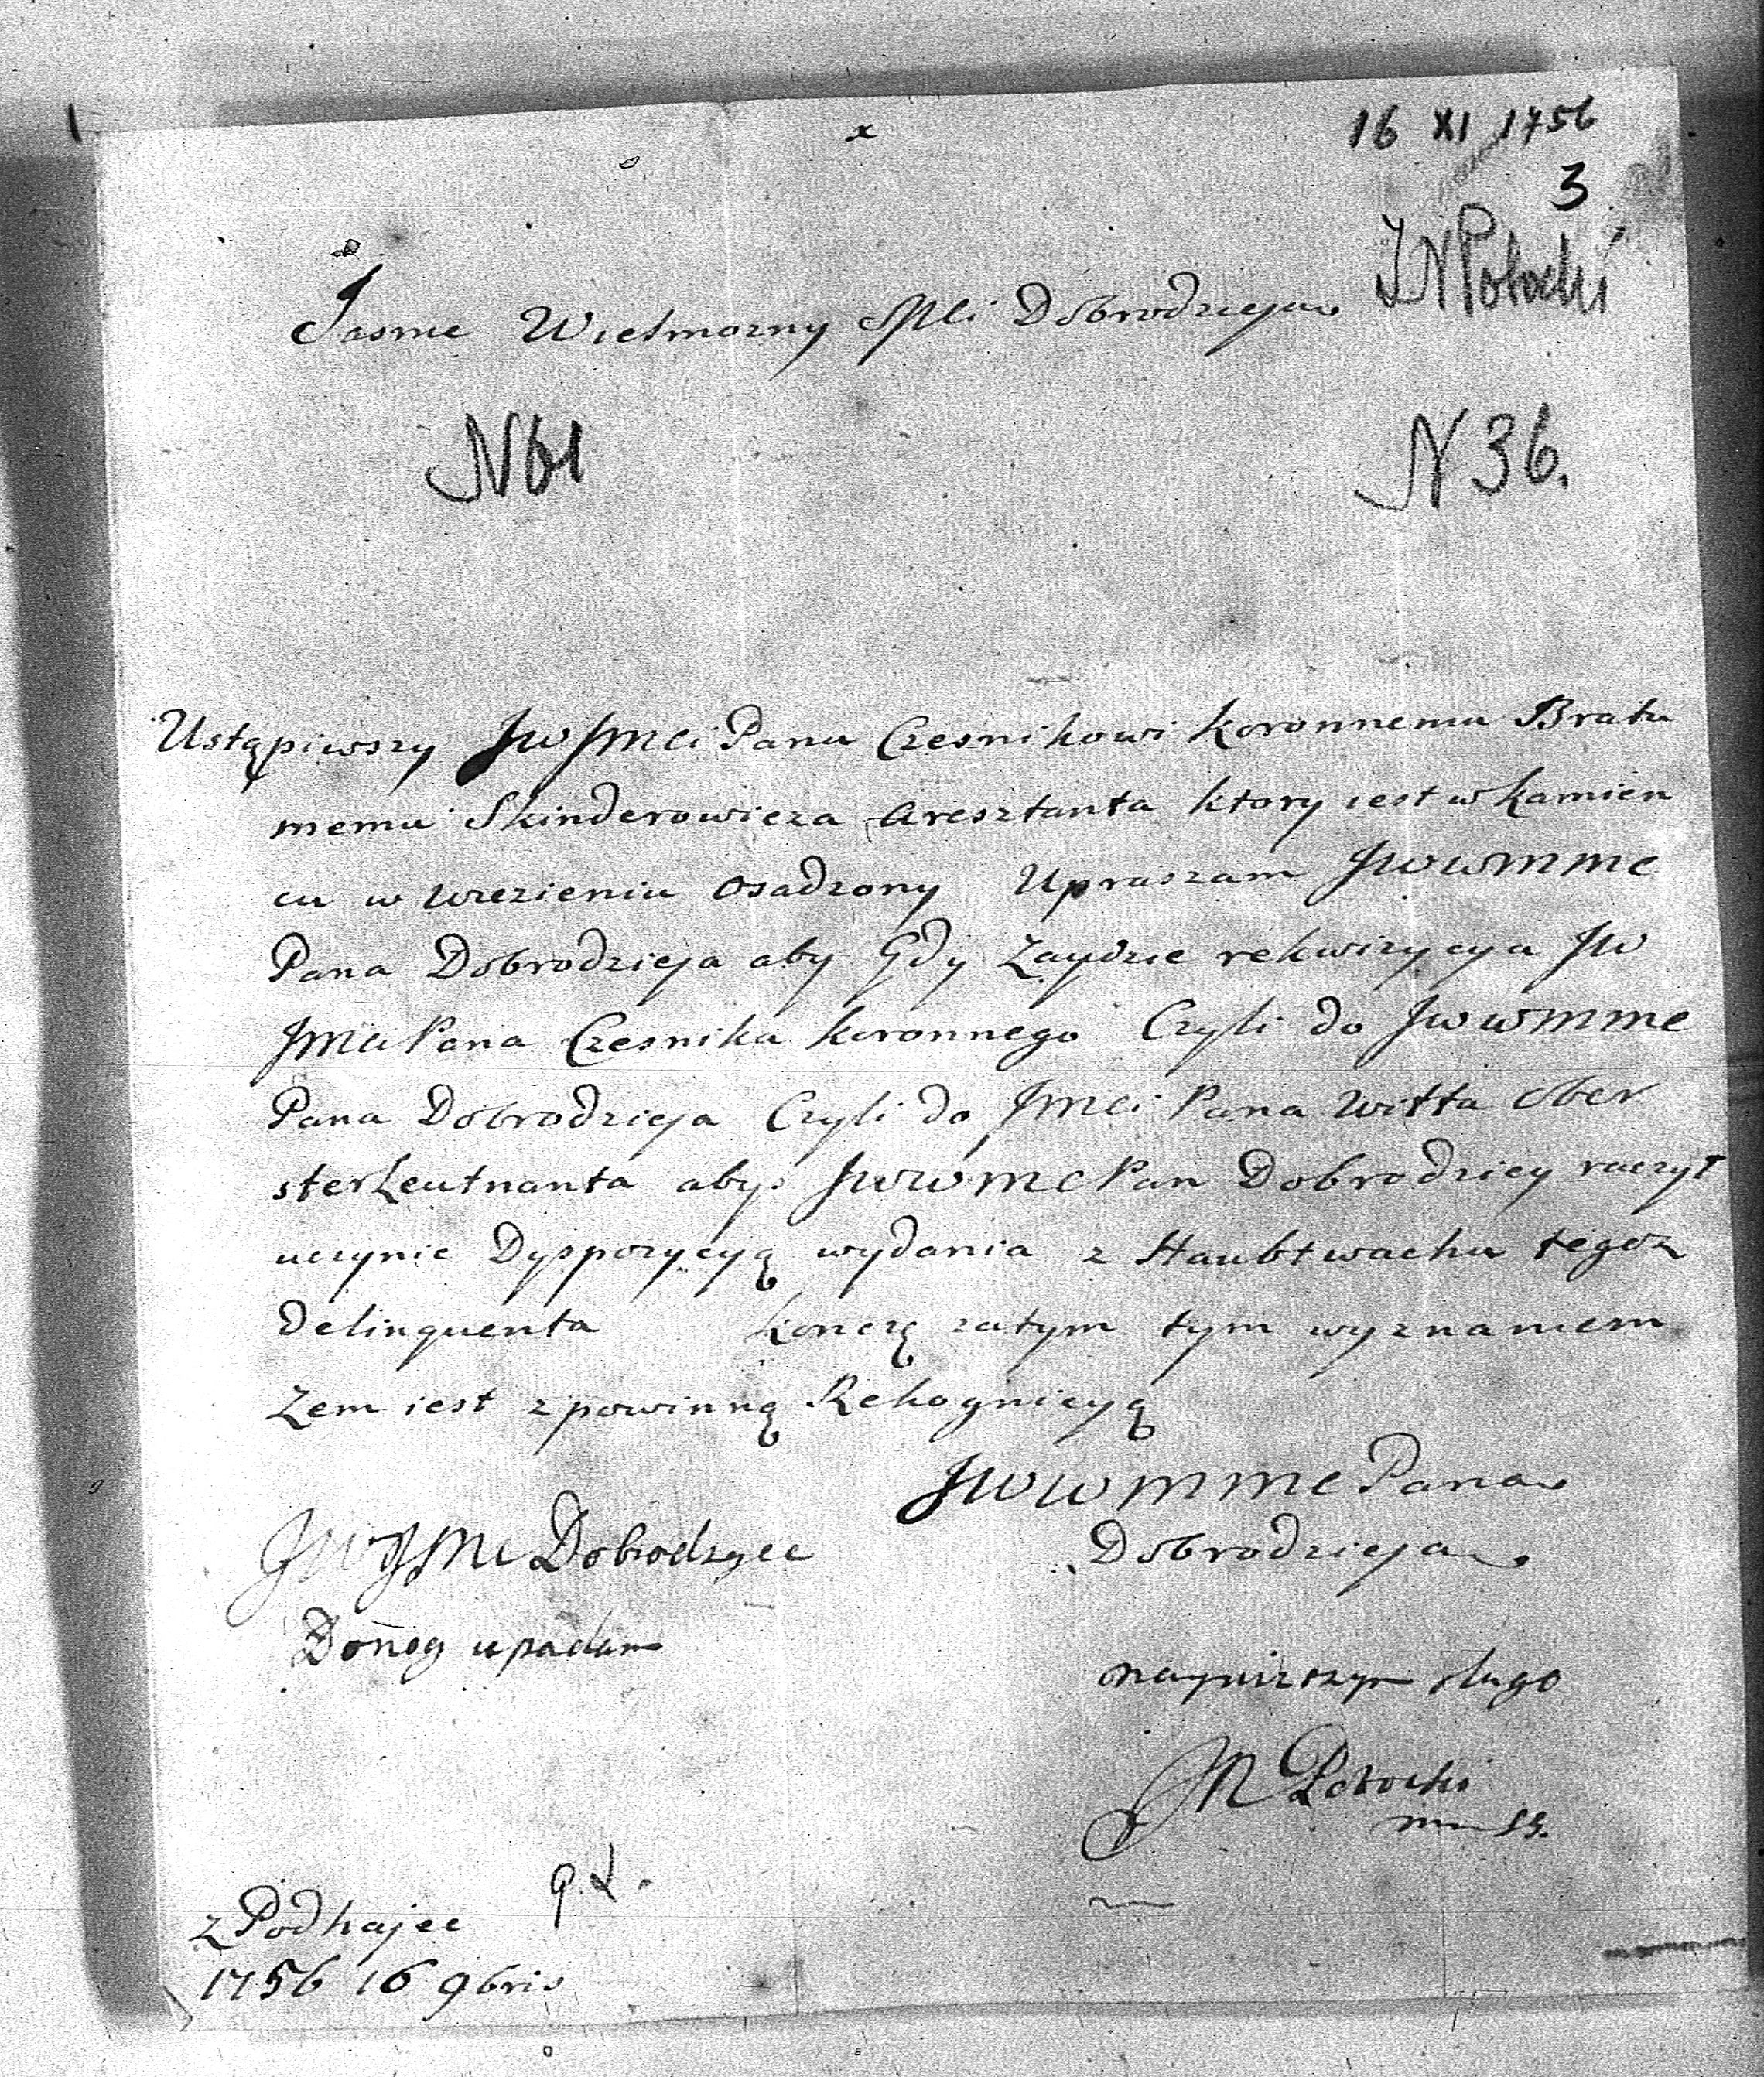 16 XI 1756
3
J N Potocki
Jasnie Wielmozny Mci Dobrodzieju
N 61
N 36.
Ustąpiwszy JWJmci Panu Czesnikowi Koronnemu Bratu
memu Skinderowicza Aresztanta ktory iest w Kamien
cu w wiezieniu osadzony Upraszam JWWMMC
Pana Dobrodzieja aby Gdy Zaydzie rekwizycya JW
JmciPana Czesnika Koronnego Czyli do JWWMMC
Pana Dobrodzieja Czyli do Jmci Pana Witta Ober
sterLeutnanta abyś JWWMC Pan Dobrodziey raczył
uczynic Dyspozycyą wydania z Haubtwachu tegoz
Delinquenta Konczę zatym tym wyznaniem
Zem iest z powinną Rekognicyą
JWWMMC Pana
Dobrodzieja
JWJMC Dobrodzyce
Do nog upadam
naynizszym sługo
JN Potocki
z Podhajec
1756 16 9bris